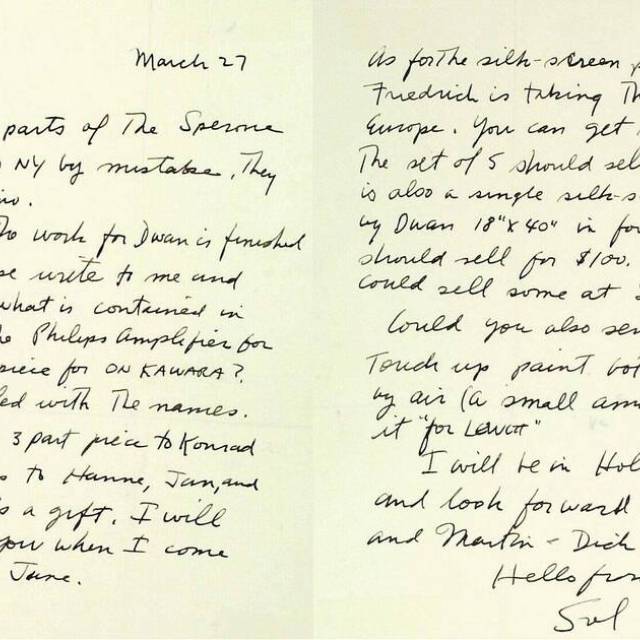 March 27
parts of The Sperone
NY by mistake. They
To work for Dwan is finished
write to me and
what is contained in
Philips Amplifier for
piece for ON KAWARA?
with The names.
3 part piece to Konrad
to Hanne, Jan, and
a gift. I will
you when I come
June.
As for the silk-screen
Friedrich is taking Th
Europe. You can get
The set of 5 should sel
is also a single silk-s
by Dwan 18"x40" in fo
should sell for $100.
could sell some at
Could you also sen
Touch up paint bot
by air (a small am
it "for LEWITT"
I will be in Hol
and look forward
and Martin - Dick
Hello from
Sol